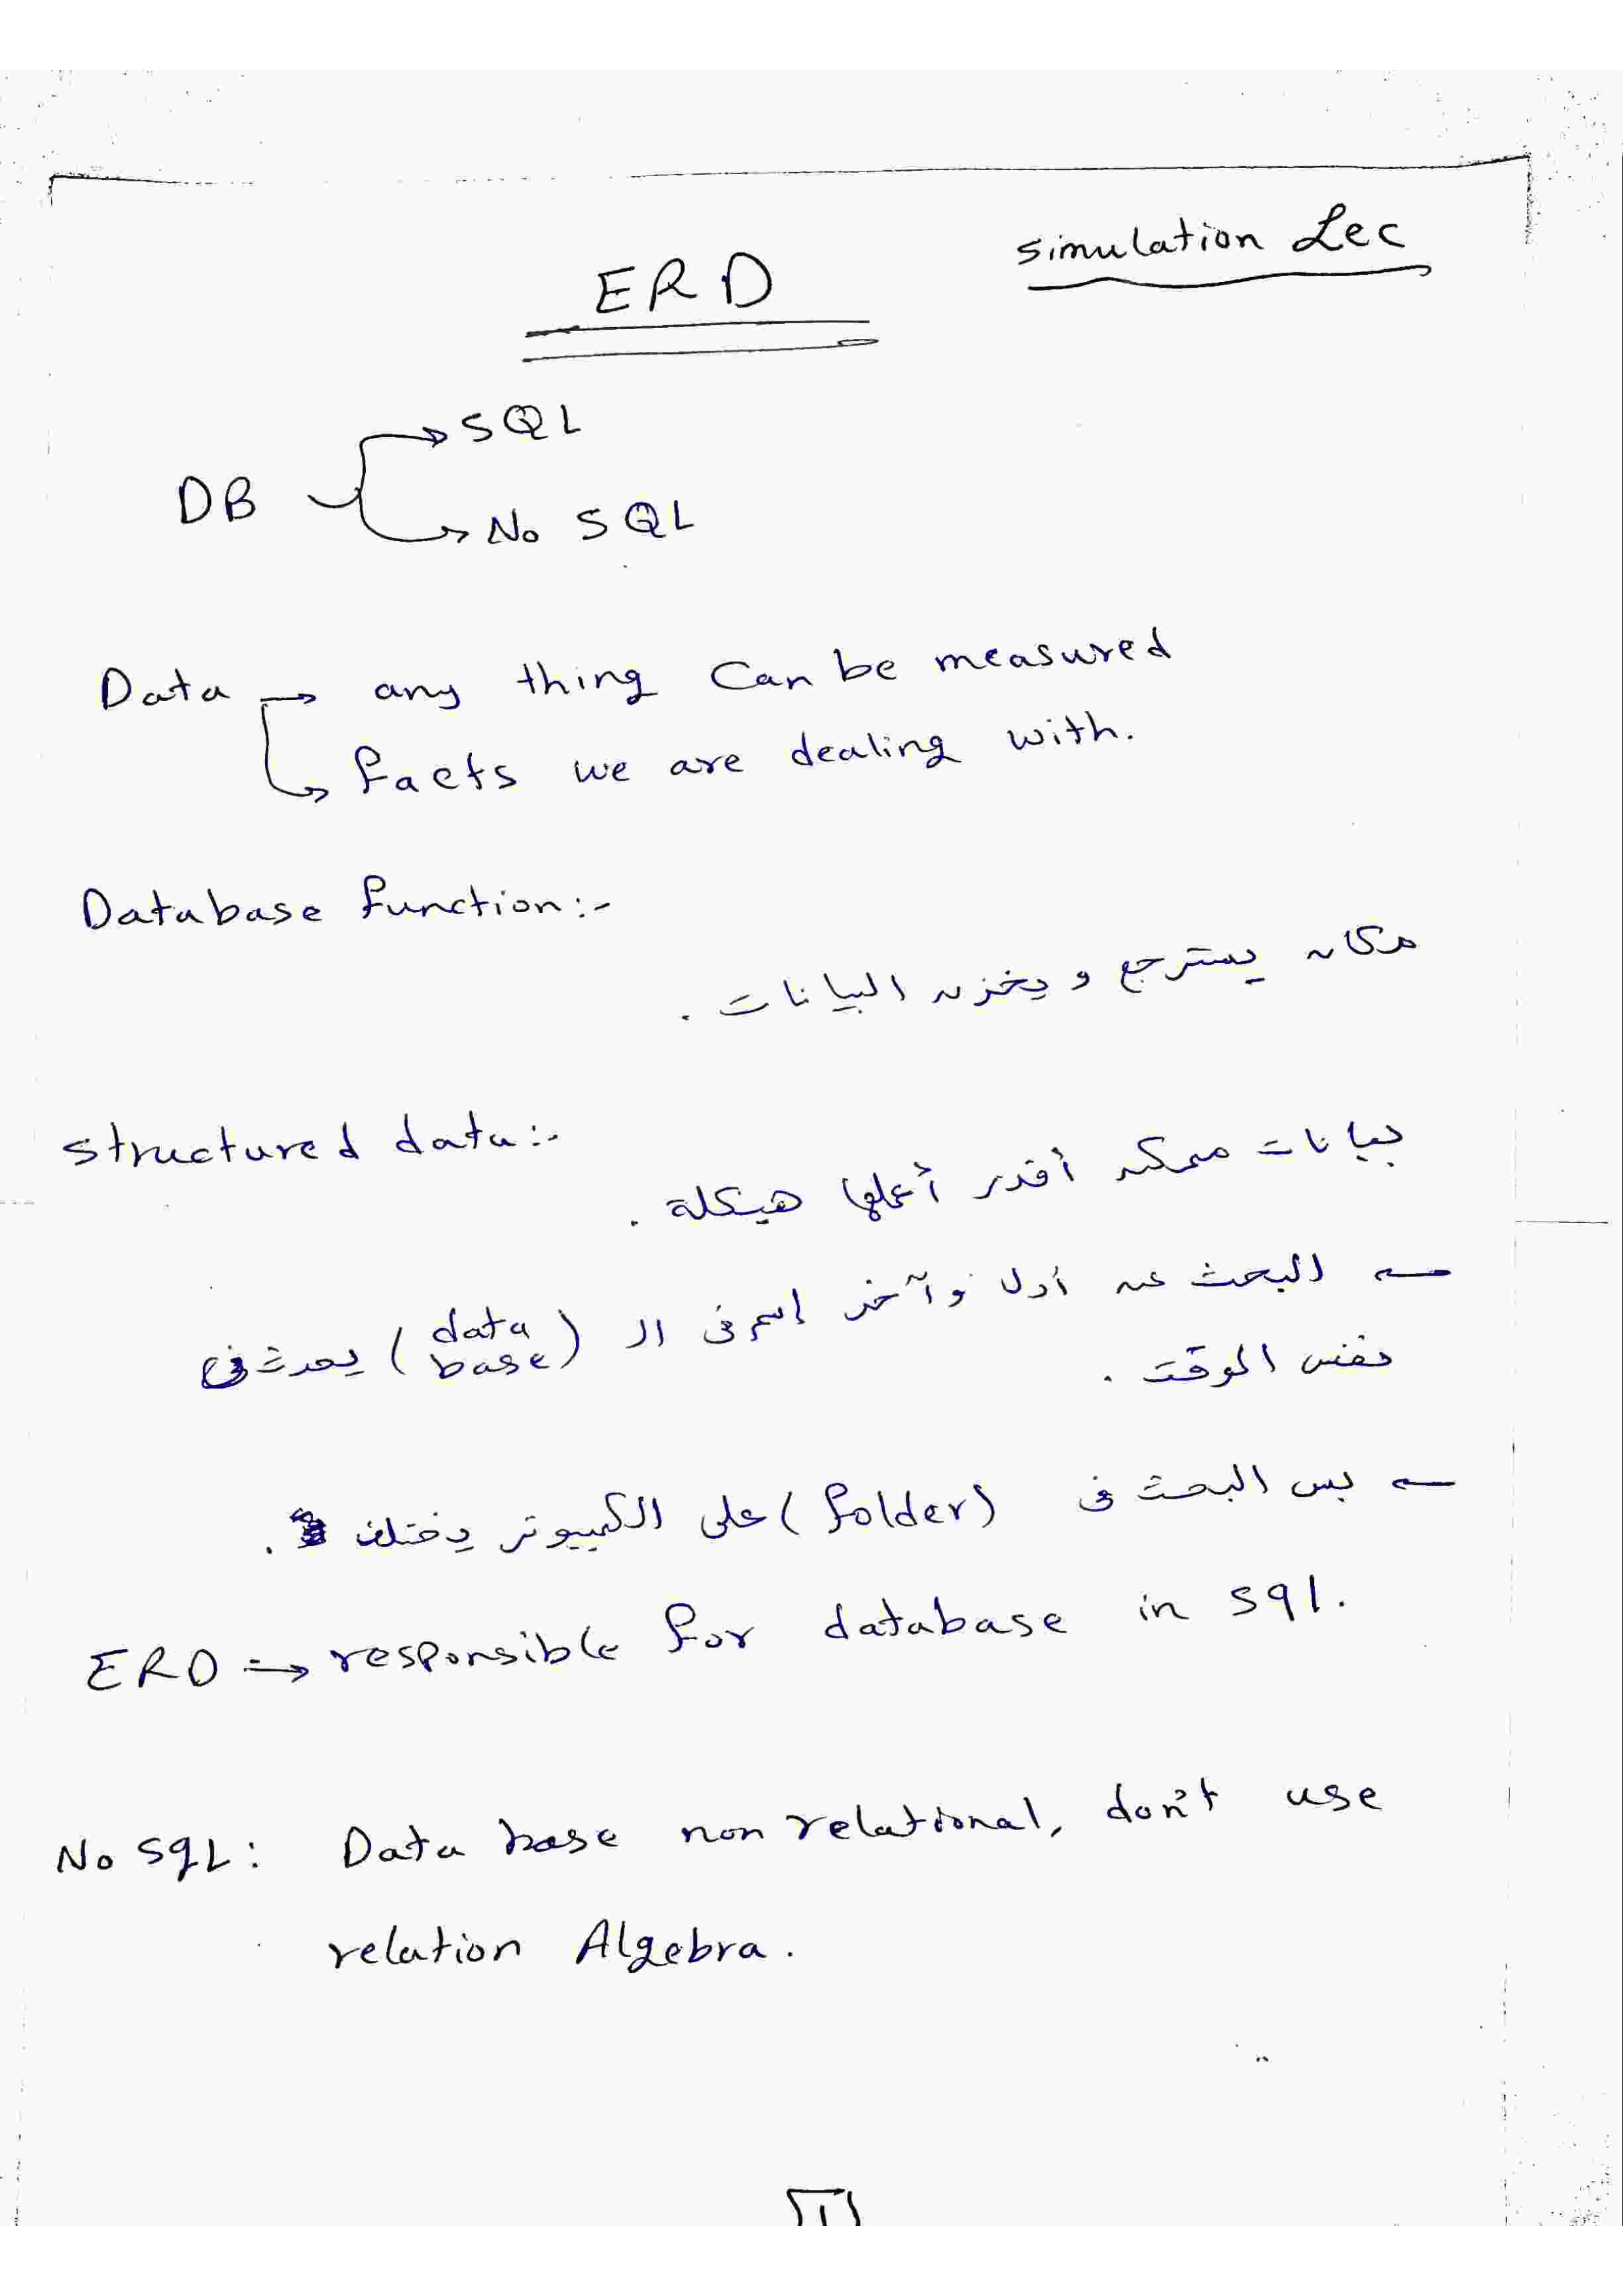 simulation Lec
ERD
DB → SQL
→ No SQL
Data → any thing Can be measured
→ facts we are dealing with.
Database function:-
مكان يسترجع و يخزن البيانات .
structured data:-
بيانات ممكن أقدر أعملها هيكلة .
← البحث عن أول وآخر إسم فى الـ (data base) يحدث فى
نفس الوقت .
← بس البحث فى (folder) على الكمبيوتر يختلف .
ERD → responsible for database in sql.
No SqL: Data base non relational, don't use
relation Algebra.